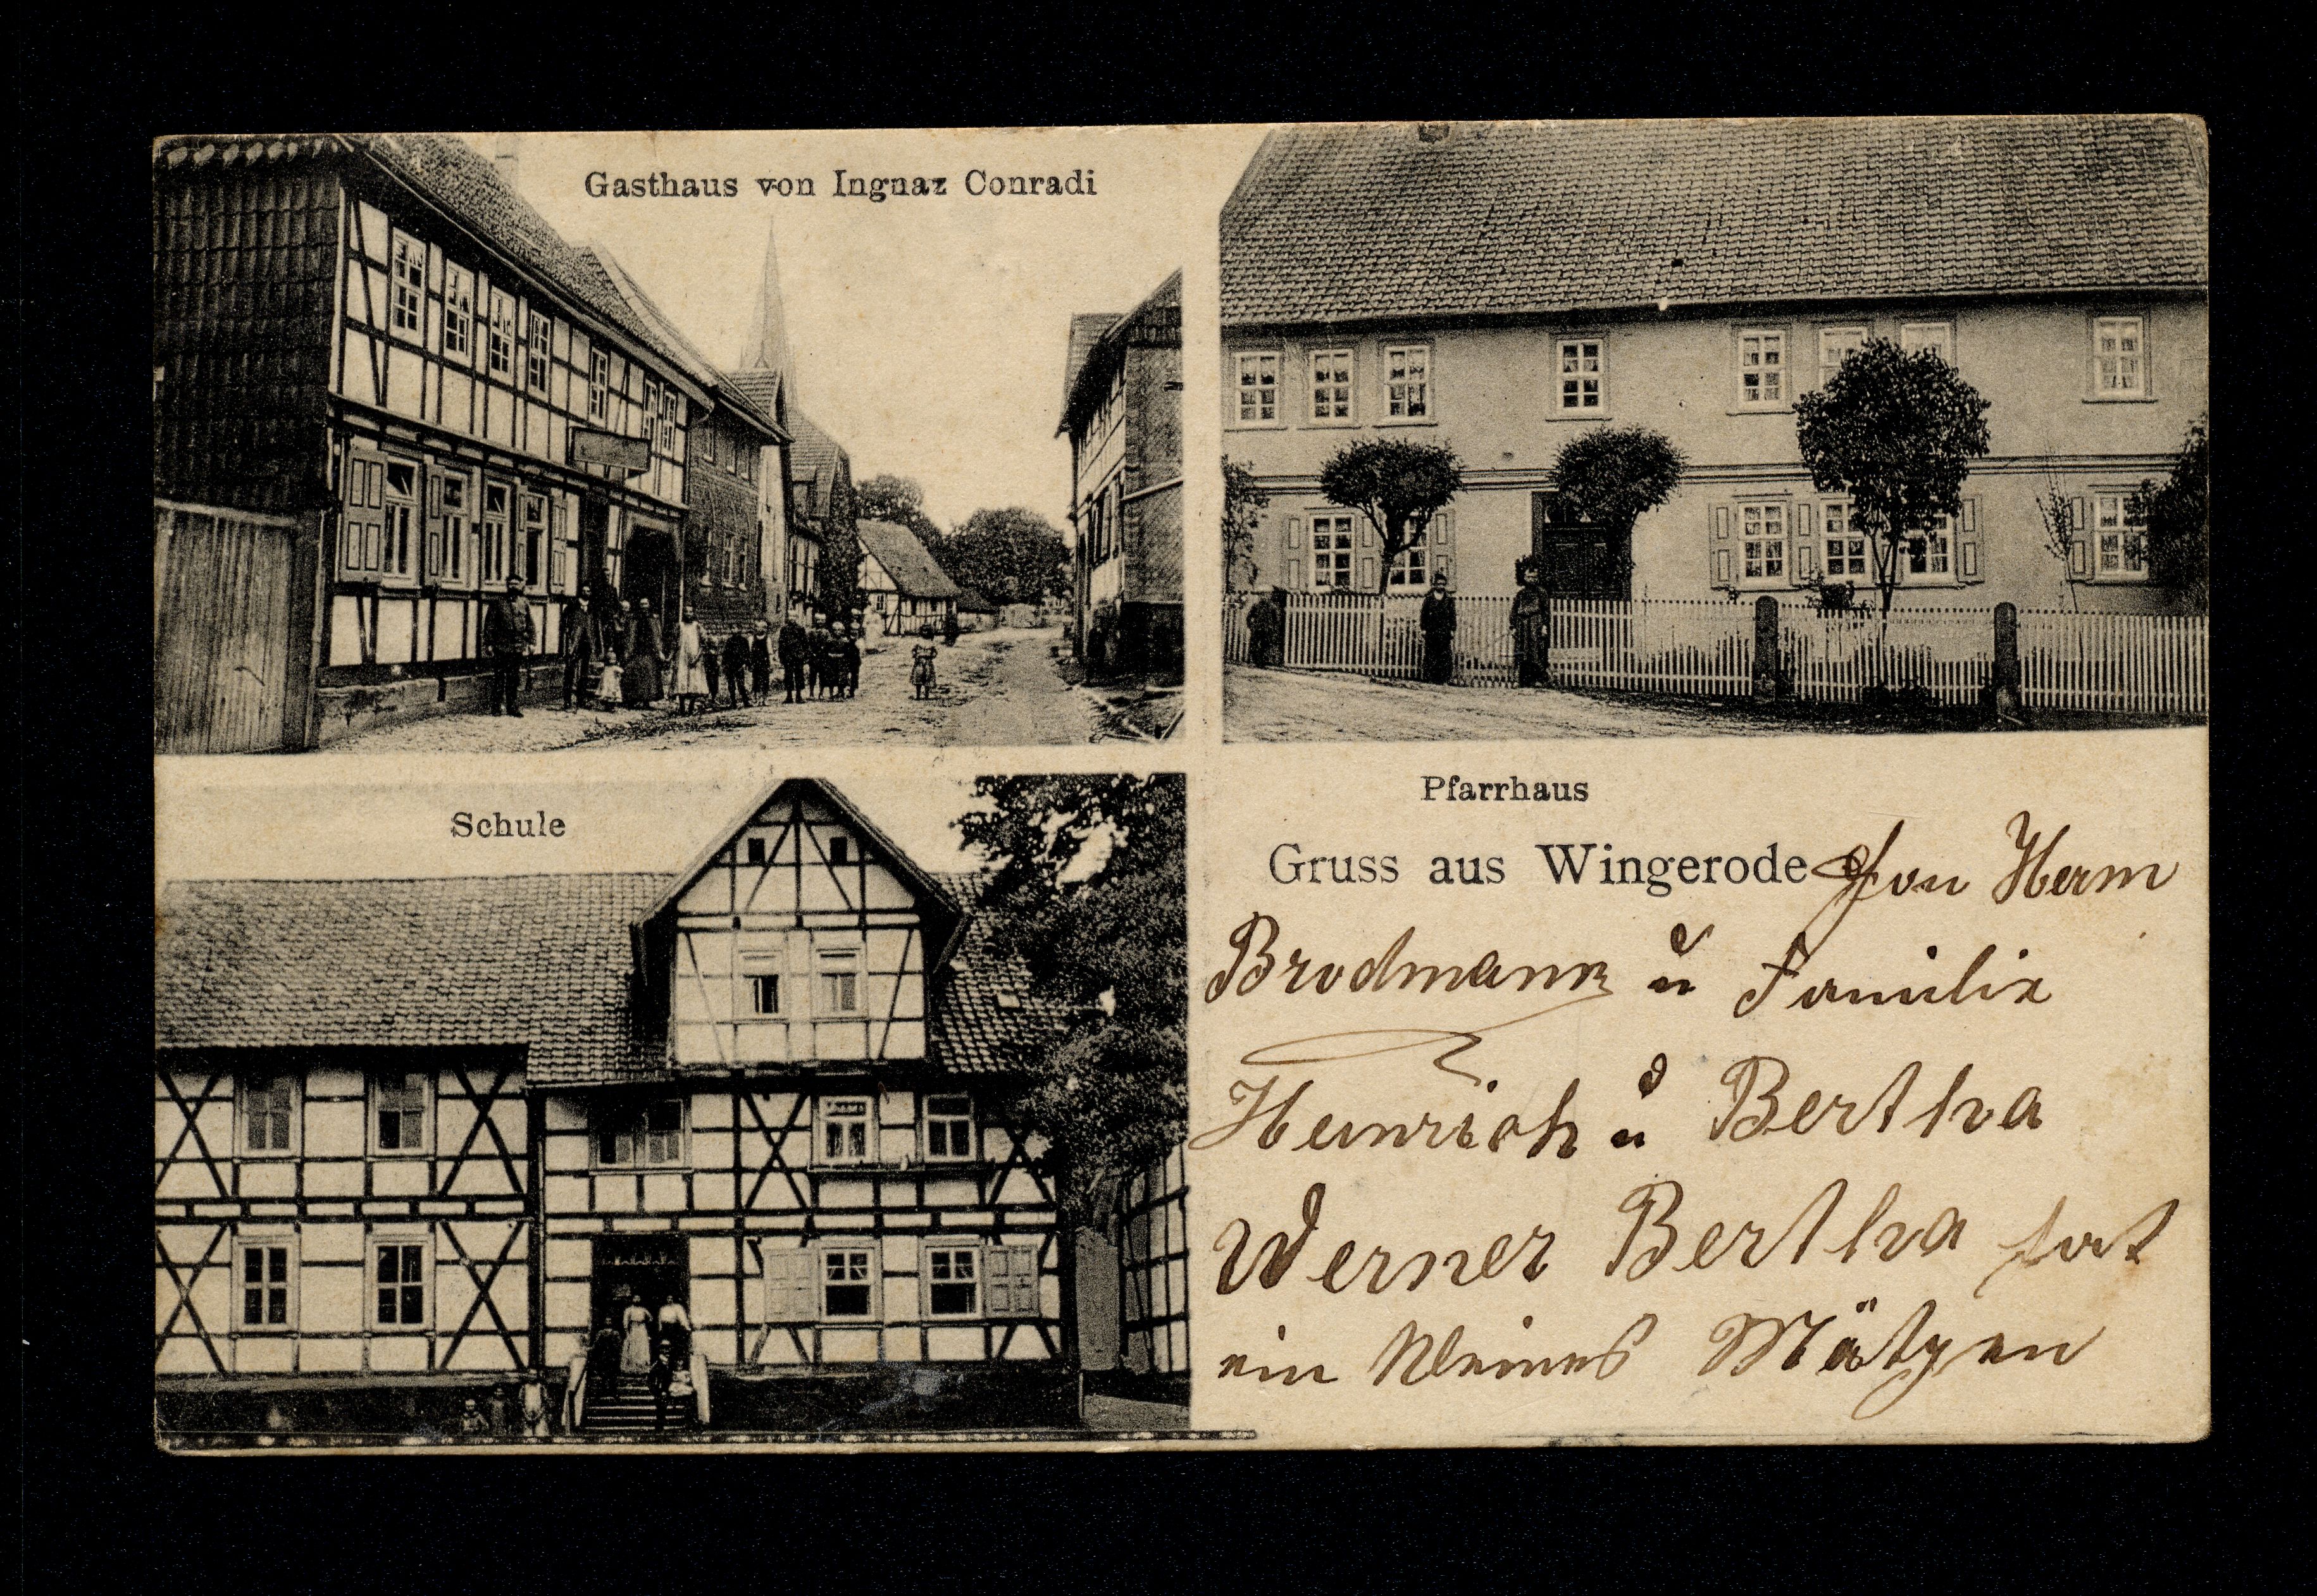 Gasthaus von Ingnaz Conradi
Schule
Pfarrhaus
Gruss aus Wingerode Von Herm
Brodmann u Familie
Heinrich u Bertha
Werner Bertha hat
ein kleines Mätgen